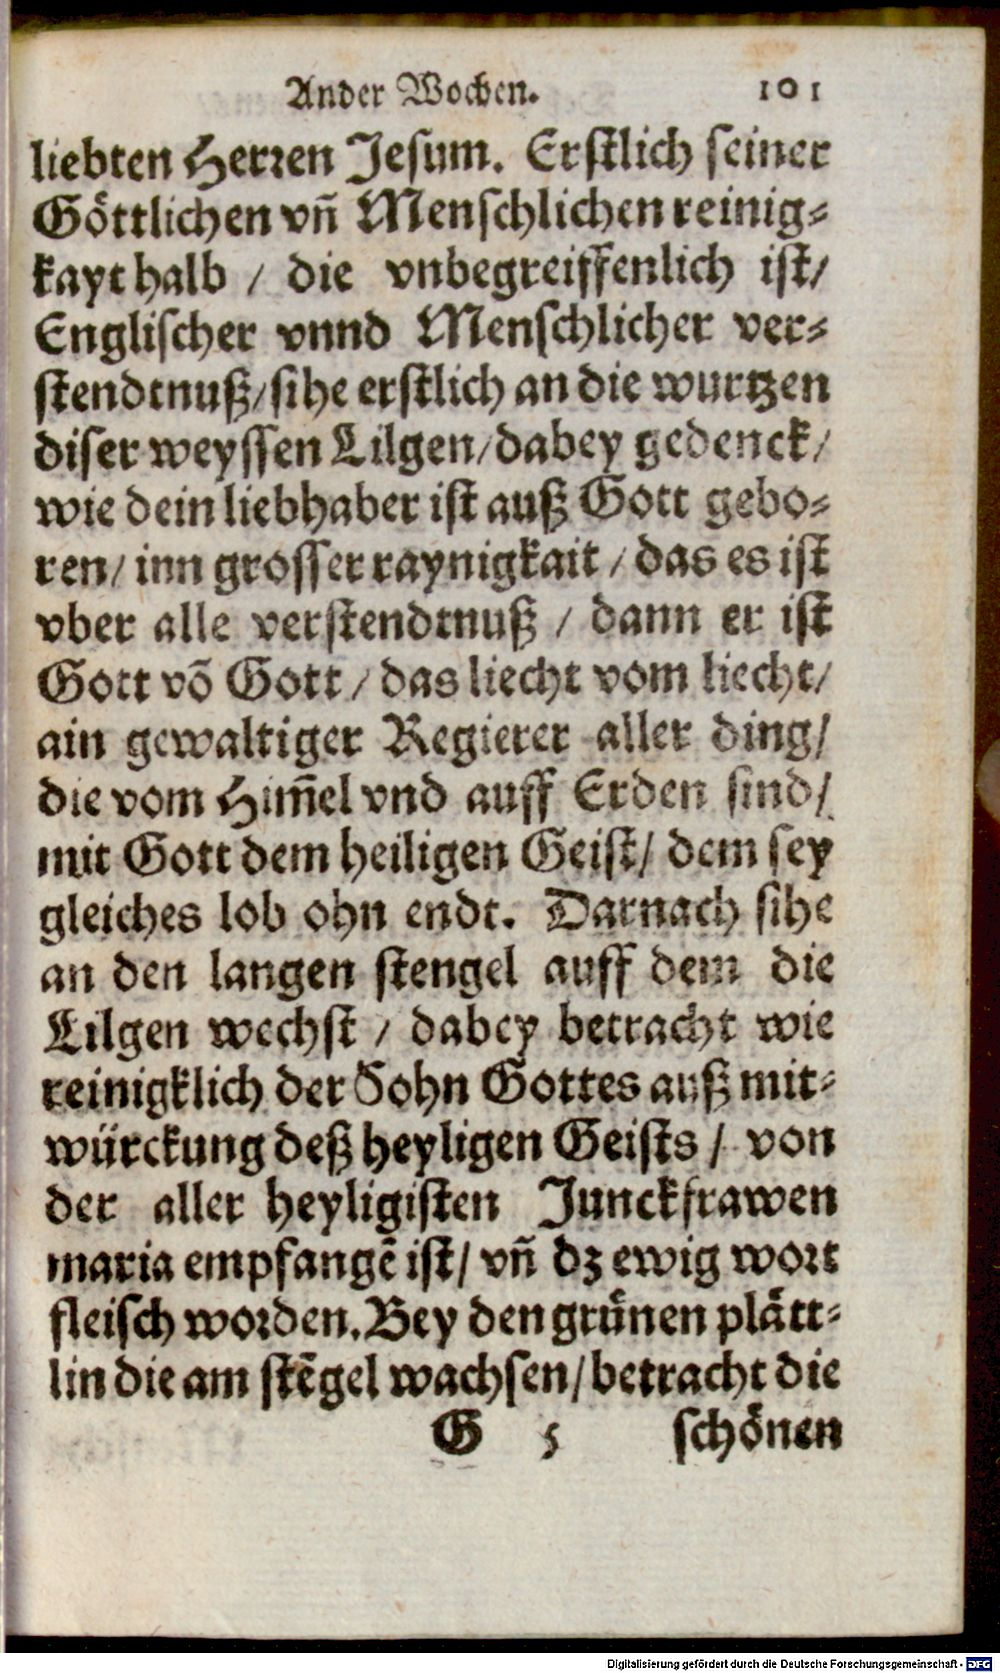 Ander Wochen. 101
liebten Herren Jesum. Erstlich seiner
Göttlichen vñ Menschlichen reinig-
kayt halb / die vnbegreiffenlich ist/
Englischer vnnd Menschlicher ver-
stendtnuß/sihe erstlich an die wurtzen
diser weyssen Lilgen/dabey gedenck/
wie dein liebhaber ist auß Gott gebo-
ren/ inn grosser raynigkait / das es ist
vber alle verstendtnuß / dann er ist
Gott võ Gott / das liecht vom liecht/
ain gewaltiger Regierer aller ding/
die vom Him̃el vnd auff Erden sind/
mit Gott dem heiligen Geist/ dem sey
gleiches lob ohn endt. Darnach sihe
an den langen stengel auff dem die
Lilgen wechst / dabey betracht wie
reinigklich der Sohn Gottes auß mit-
würckung deß heyligen Geists / von
der aller heyligisten Junckfrawen
maria empfangẽ ist/ vñ dz ewig wort
fleisch worden. Bey den grünen plätt-
lin die am stẽgel wachsen/betracht die
G 5 schönen
Digitalisierung gefördert durch die Deutsche Forschungsgemeinschaft - DFG